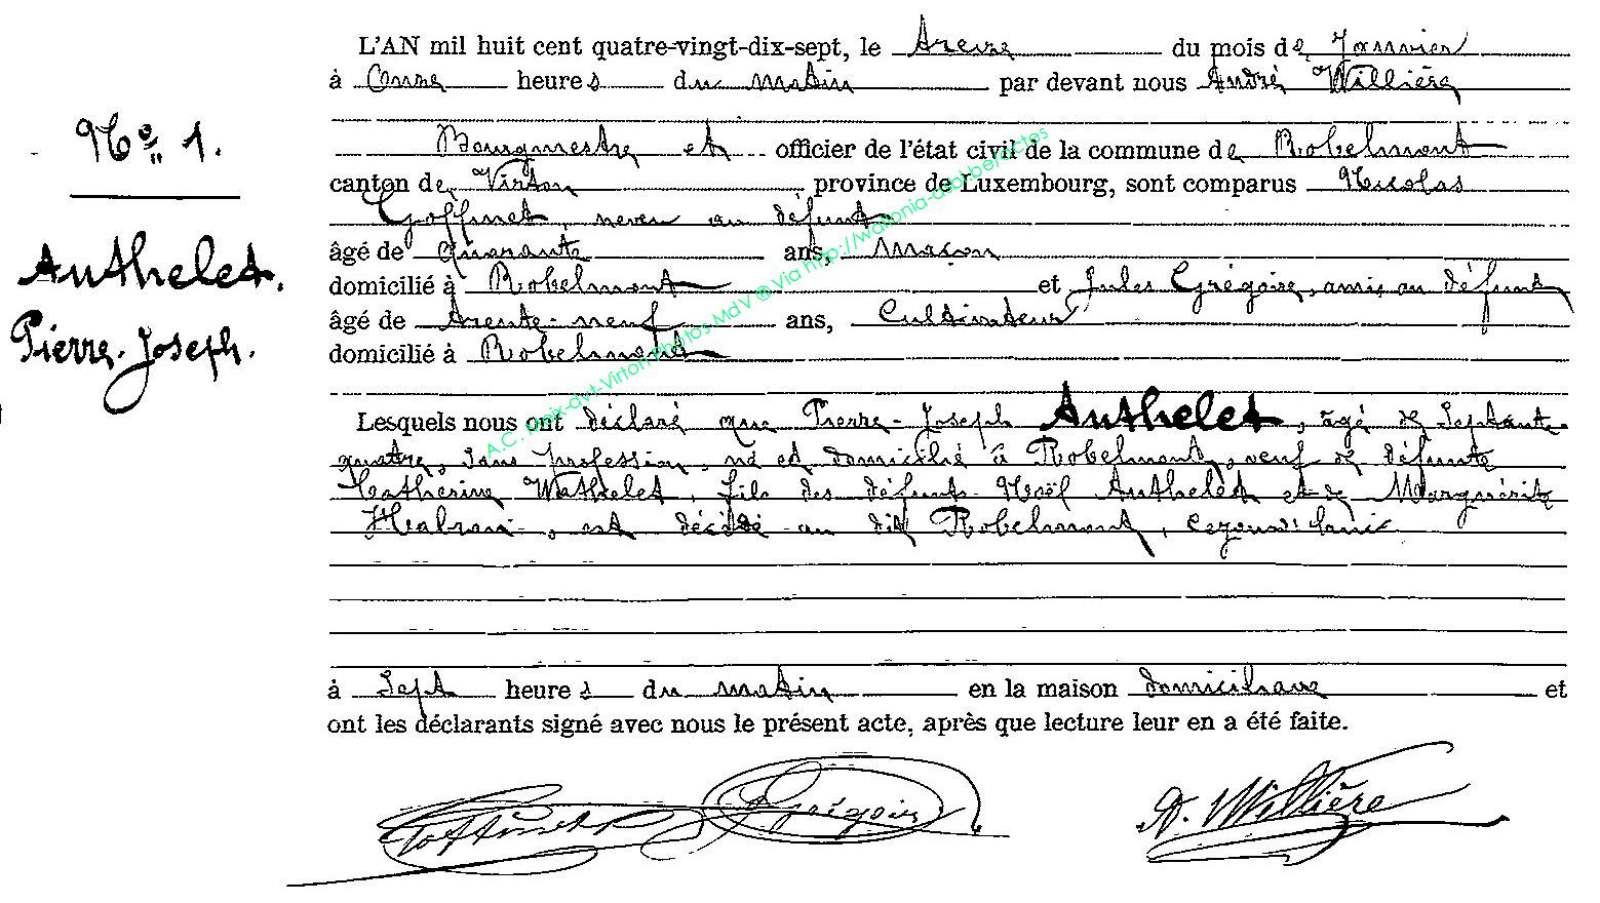 L'AN mil huit cent quatre-vingt-dix-sept, le treize du mois de Janvier
à Onze heures du matin par devant nous André Willière
Nº 1.
Bourgmestre et officier de l'état civil de la commune de Robelmont
canton de Virton province de Luxembourg, sont comparus Nicolas
Goffinet, neveu au défunt
Anthelet.
âgé de quarante ans, Maçon
domicilié à Robelmont et Jules Grégoire, ami au défunt
Pierre-Joseph.
âgé de trente-neuf ans, Cultivateur
domicilié à Robelmont
Lesquels nous ont déclaré que Pierre-Joseph Anthelet, âgé de septante-
quatre, sans profession, né et domicilié à Robelmont, veuf de défunte
Catherine Wathelet, fils des défunts Noël Anthelet et de Marguérite
Habran, est décédé au dit Robelmont, cejourd'hui
à sept heures du matin en la maison domiciliaire et
ont les déclarants signé avec nous le présent acte, après que lecture leur en a été faite.
Goffinet Grégoire A. Willière
A.C. Meix-dvt-Virton Photos MdV © Via http://wallonia-asbl.be/actes